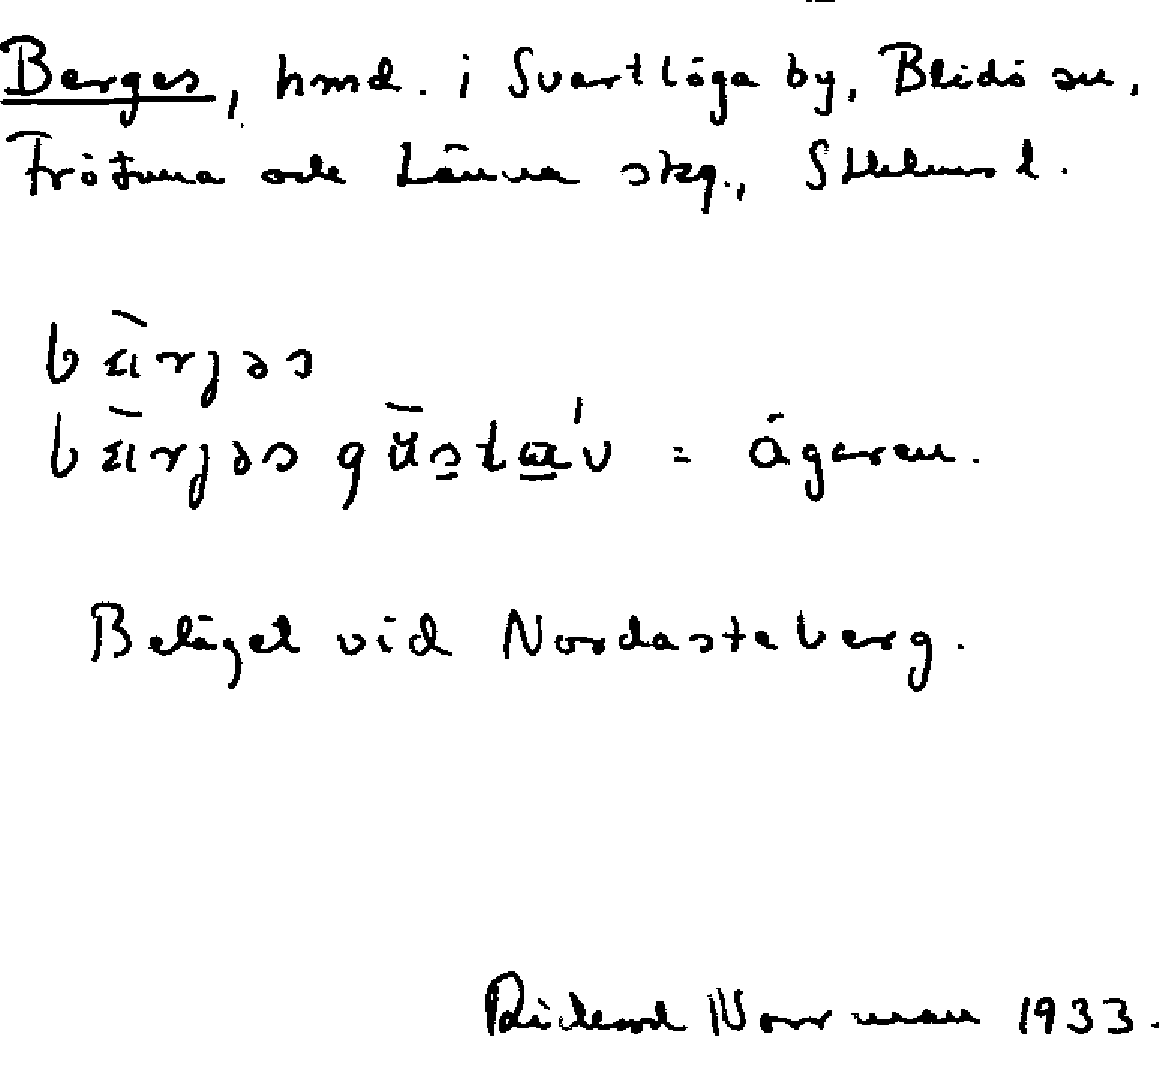 Berges, hmd. i Svartlöga by, Blidö sn,
Frötuna och Länna skg., Sthlms l.
bä̀rjəs
bä̀rjəs gŭstáv = ägaren.
Beläget vid Nordasteberg.
Rickard Norrman 1933.